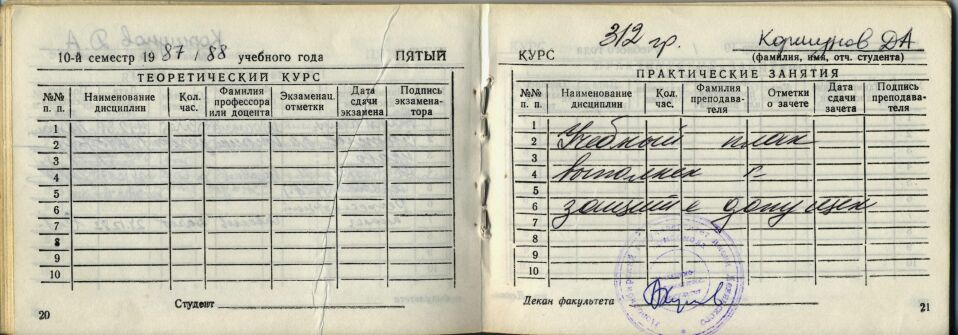 10-й семестр 19 87 / 88 учебного года ПЯТЫЙ
ТЕОРЕТИЧЕСКИЙ КУРС
№№ п. п. Наименование дисциплин Кол. час. Фамилия профессора или доцента Экзаменац. отметки Дата сдачи экзамена Подпись экзамена-тора
1
2
3
4
5
6
7
8
9
10
Студент
20
КУРС 312 гр. Коршунов ДА
(фамилия, имя, отч. студента)
ПРАКТИЧЕСКИЕ ЗАНЯТИЯ
№№ п. п. Наименование дисциплин Кол. час. Фамилия преподава-теля Отметки о зачете Дата сдачи зачета Подпись преподава-теля
1
2 Учебный план
3
4 выполнен к
5
6 защите допущен
7
8
9
10
Декан факультета
21